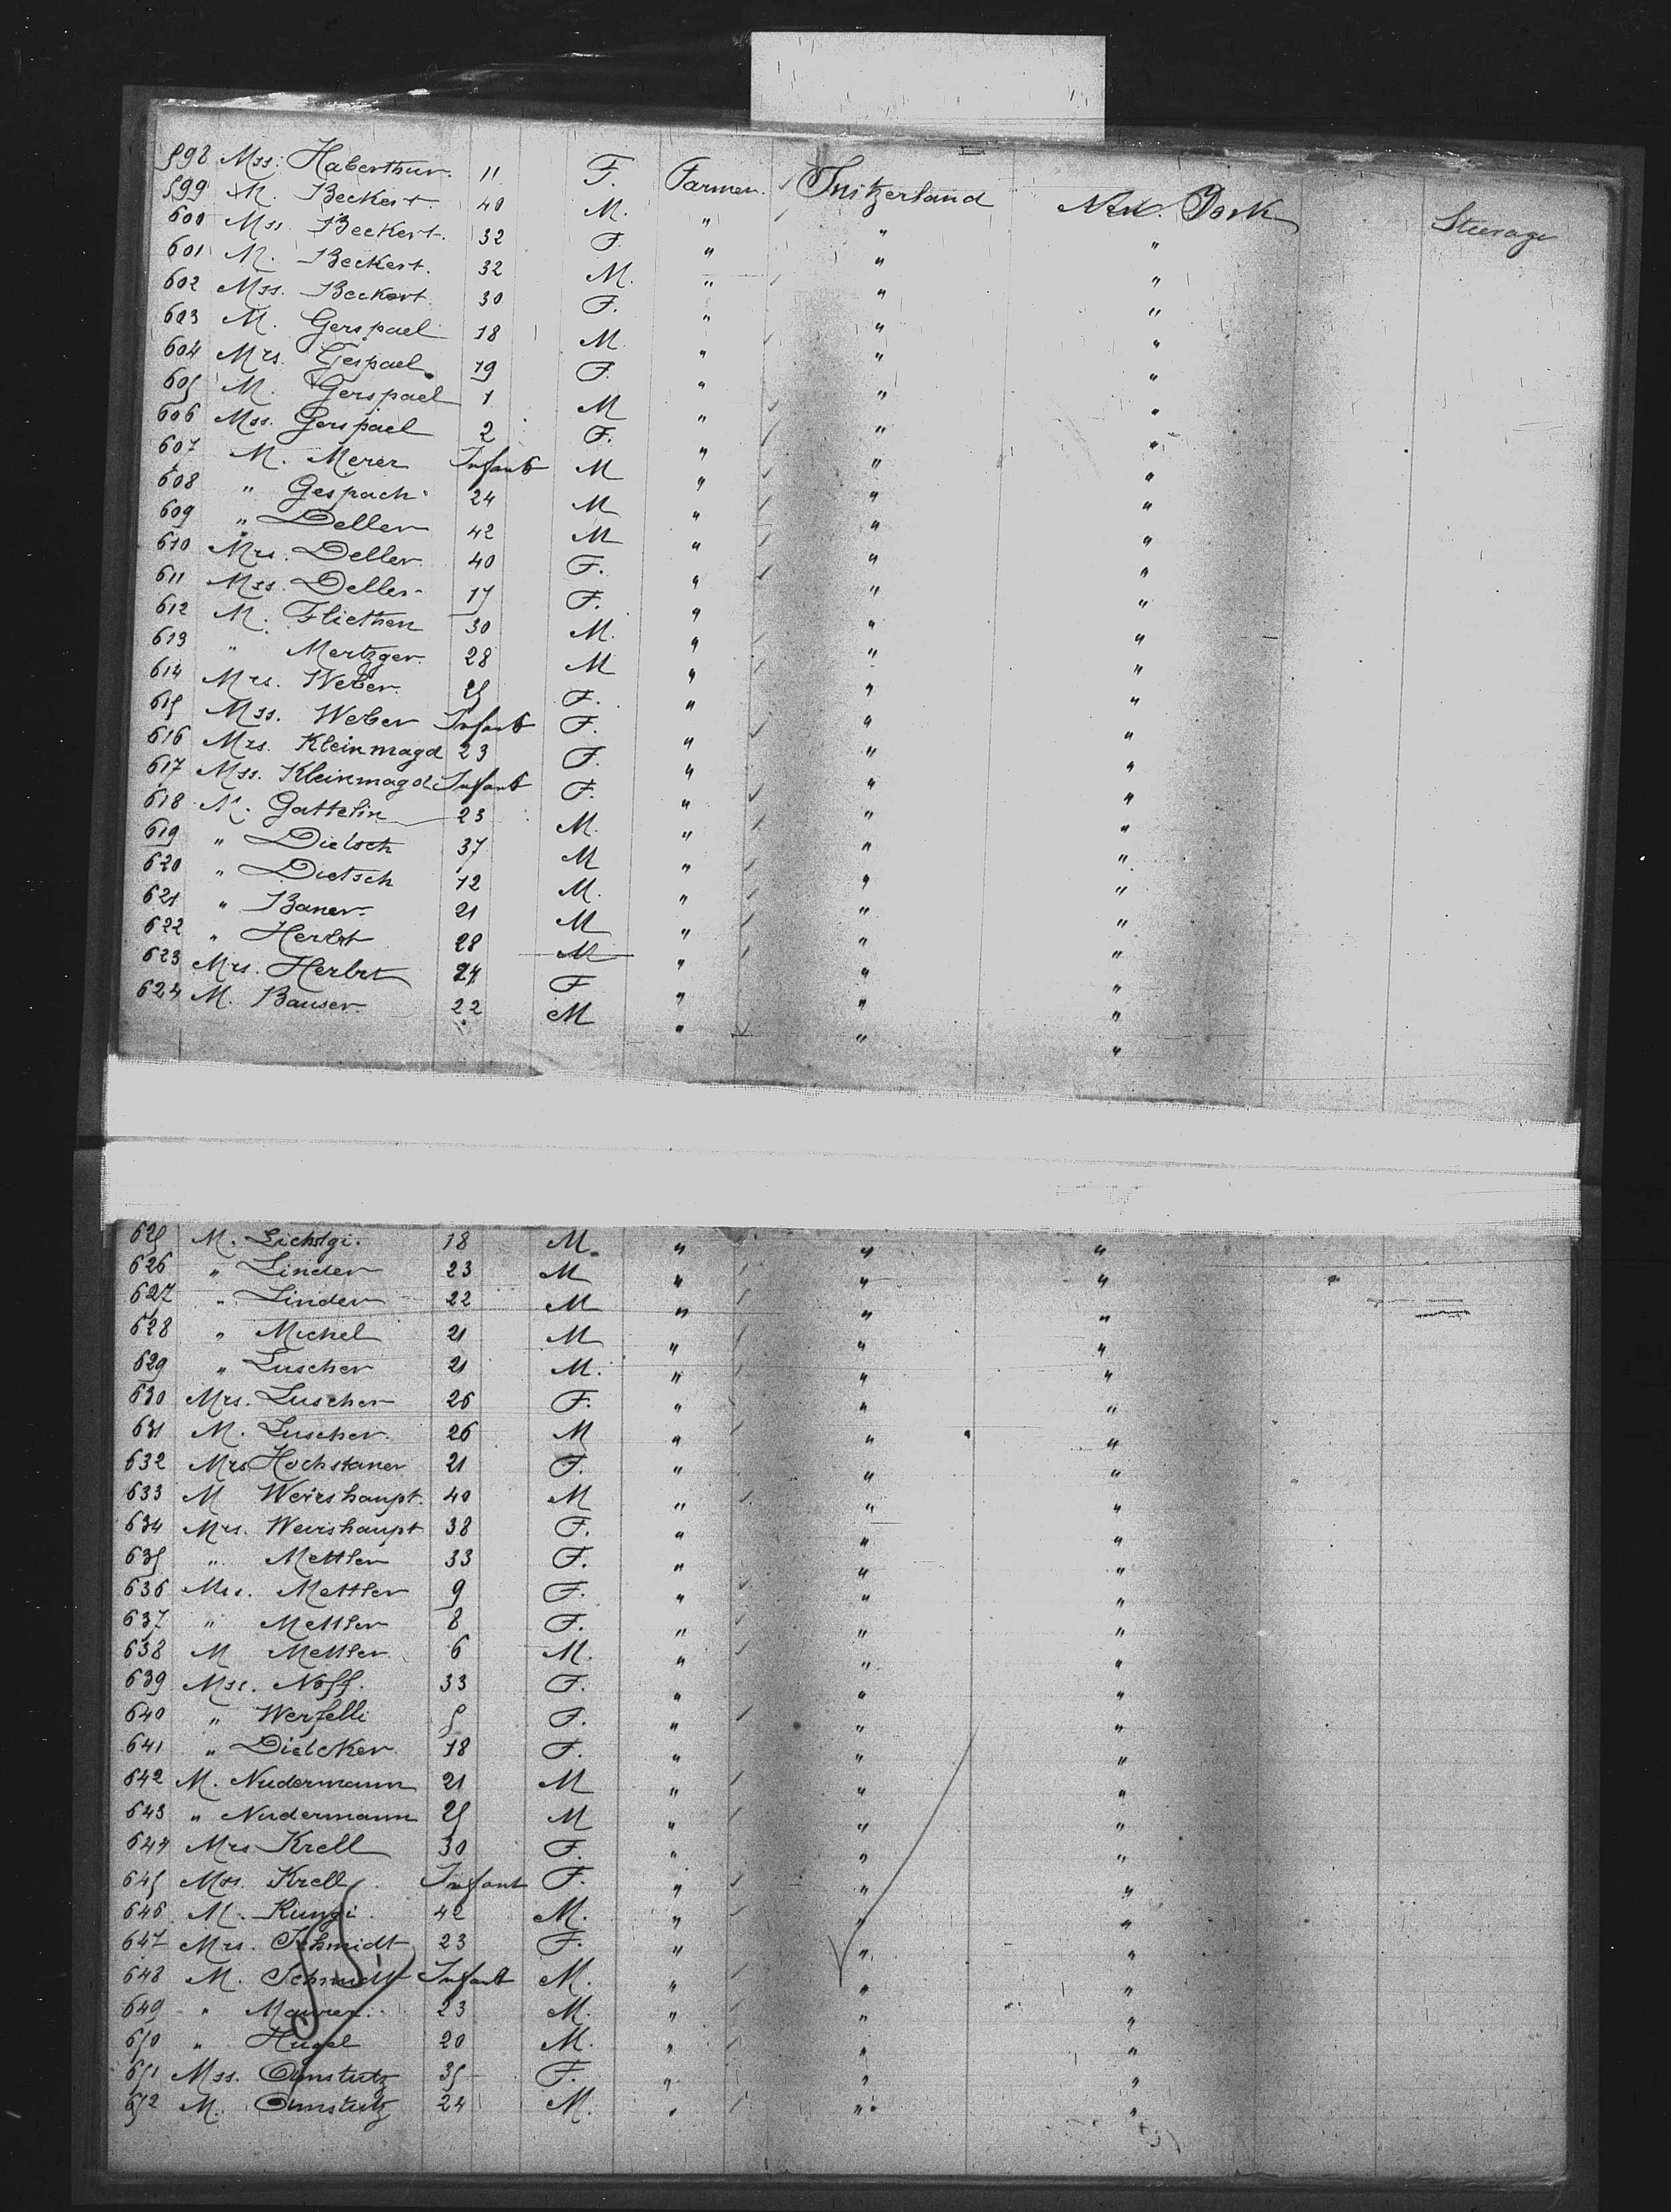 598 Mss. Haberthur. 11 F. Farmer. Switzerland New. York Steerage
599 M. Beckert. 40 M. " " "
600 Mss. Beckert. 32 F. " " "
601 M. Beckert. 32 M. " " "
602 Mss. Beckert 30 F. " " "
603 M. Gerspael 18 M. " " "
604 Mrs. Gespael 19 F. " " "
605 M. Gerspael 1 M " " "
606 Mss. Gerspael 2 F. " " "
607 M. Merer Infant M " " "
608 " Gespach 24 M " " "
609 " Deller 42 M " " "
610 Mrs. Deller 40 F. " " "
611 Mss. Deller 17 F. " " "
612 M. Fliethen 30 M. " " "
613 " Mertzger. 28 M " " "
614 Mrs. Weber. 25 F. " " "
615 Mss. Weber Infant F. " " "
616 Mrs. Kleinmagd 23 F. " " "
617 Mss. Kleinmagd Infant F. " " "
618 M. Gattelin 23 M. " " "
619 " Dietsch 37 M " " "
620 " Dietsch 12 M. " " "
621 " Baner. 21 M " " "
622 " Herbt 28 M " " "
623 Mrs. Herbt 24 F " " "
624 M. Bauser. 22 M " " "
625 M. 18 M. " " "
626 " Linder 23 M " " "
627 " Linder 22 M " " "
628 " Michel 21 M " " "
629 " Luscher 21 M. " " "
630 Mrs. Luscher 26 F. " " "
631 M. Luscher. 26 M " " "
632 Mrs Hochstaner 21 F. " " "
633 M Weirshaupt. 40 M " " "
634 Mrs. Weirshaupt 38 F. " " "
635 " Mettler 33 F. " " "
636 Mss. Mettler 9 F. " " "
637 " Mettler 8 F. " " "
638 M Mettler. 6 M. " " "
639 Mss. Noff. 33 F. " " "
640 " Werfelli 5 F. " " "
641 " Dielcker. 18 F. " " "
642 M. Nudermann 21 M " " "
643 " Nudermann 25 M " " "
644 Mrs Krell 30 F. " " "
645 Mss. Krell Infant F. " " "
646 M. Kungi. 42 M. " " "
647 Mrs. Schmidt 23 F. " " "
648 M. Schmidt Infant M. " " "
649 " Maurer. 23 M. " " "
650 " Hugel 20 M. " " "
651 Mss. Amstutz 35 F. " " "
652 M. Amstutz 24 M. " " "